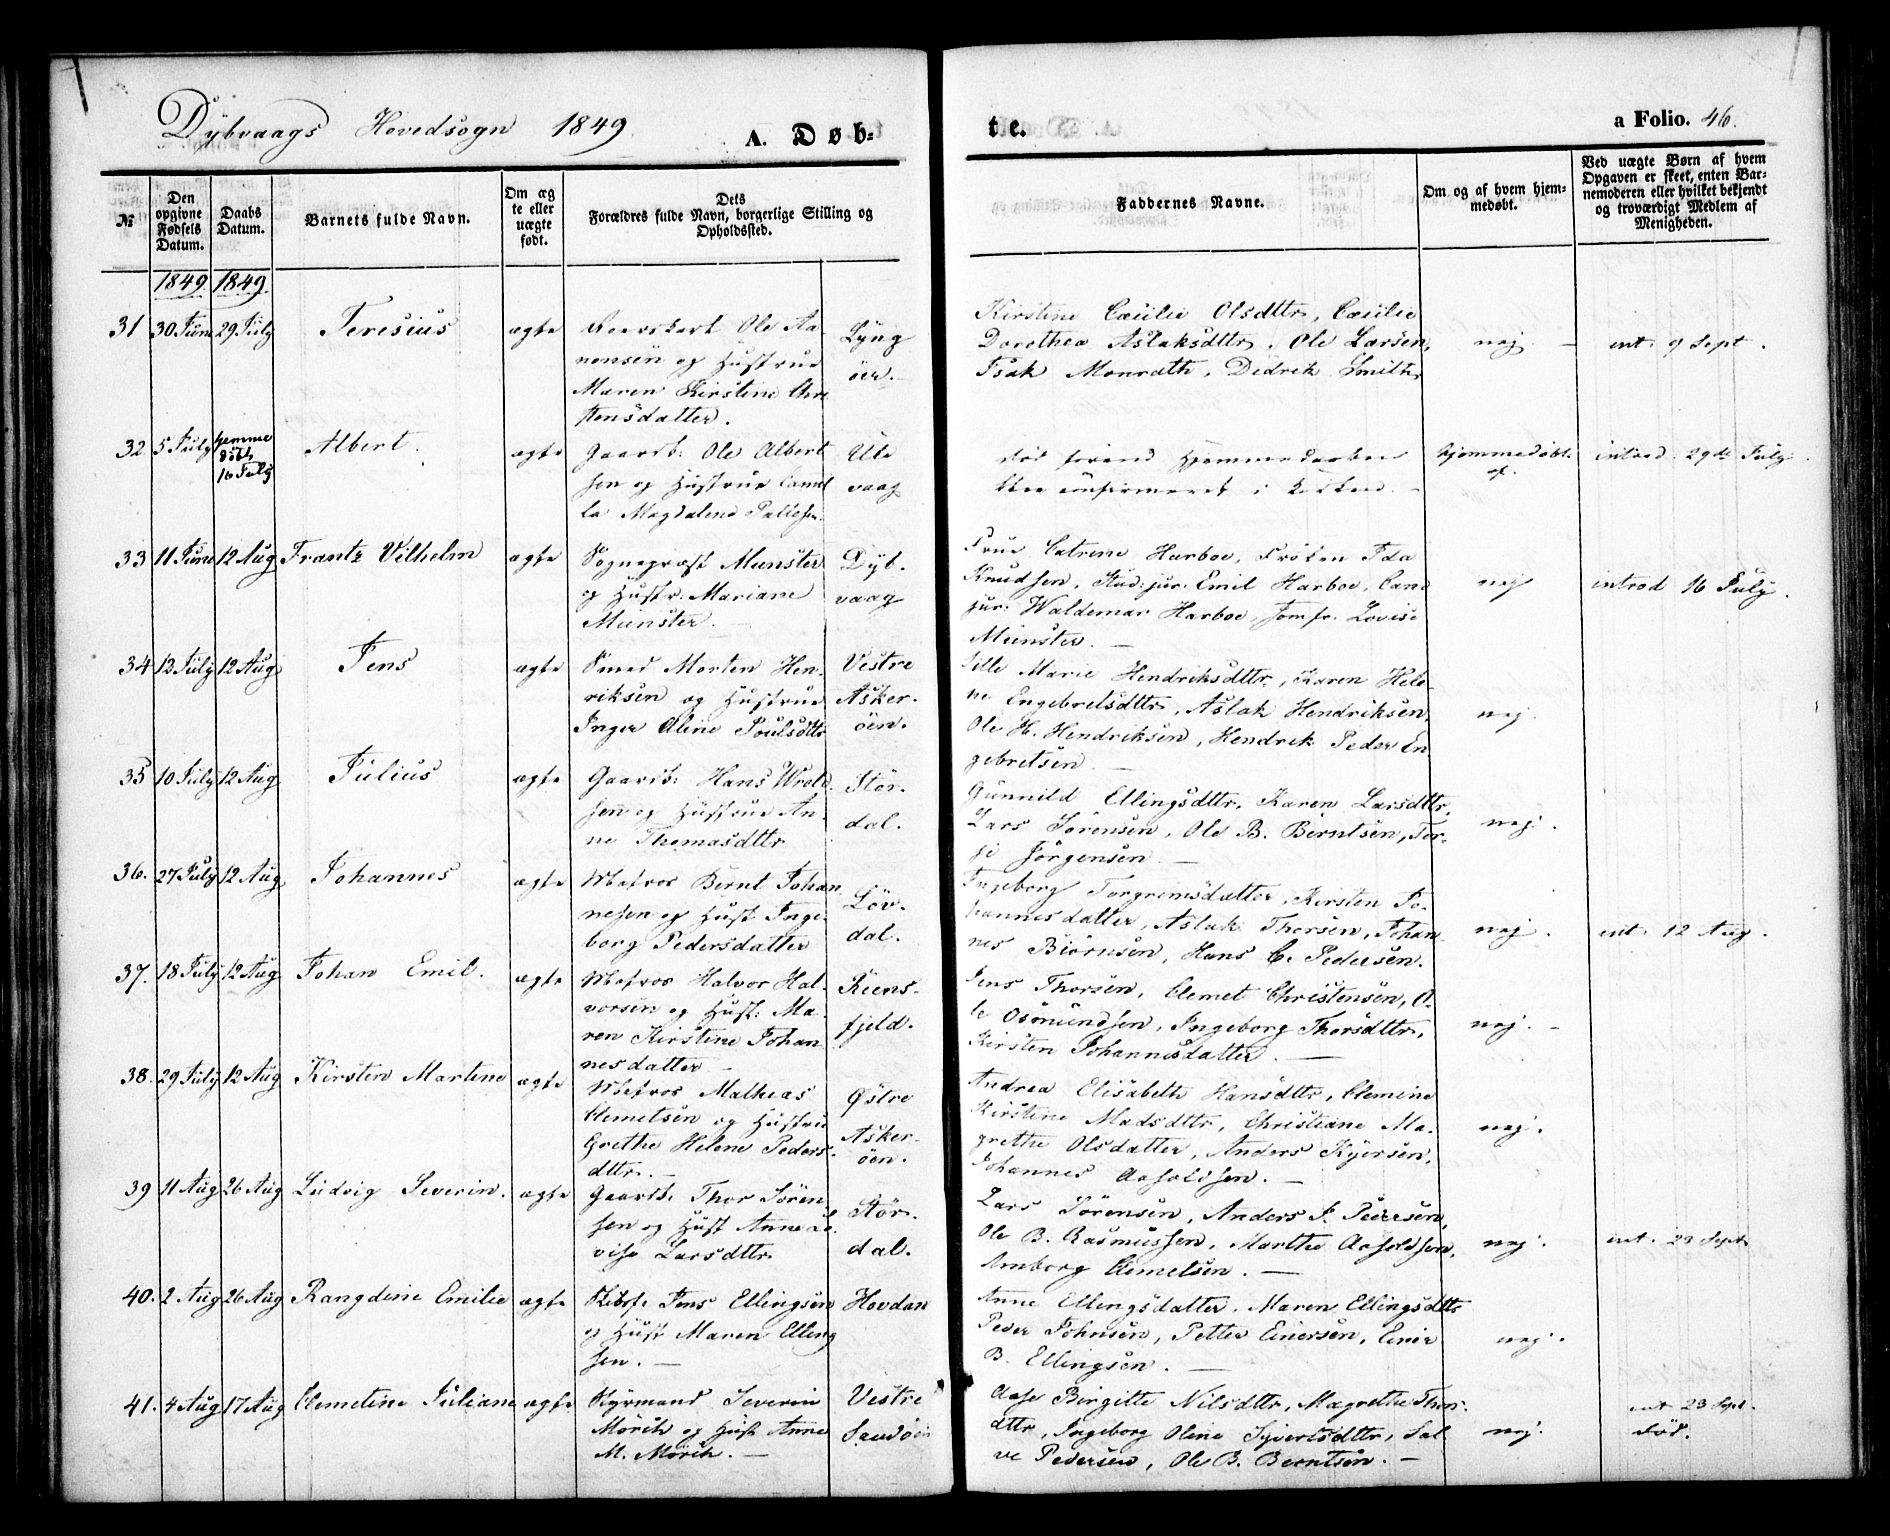 Dybvaags Hovedsogn 1849
A. Døb-
te.
a Folio. 46.
№
Den opgivne Fødsels Datum.
Daabs Datum.
Barnets fulde Navn.
Om ægte eller uægte født.
Dets Forældres fulde Navn, borgerlige Stilling og Opholdssted.
Faddernes Navne.
Om og af hvem hjemmedøbt.
Ved uægte Børn af hvem Opgaven er skeet, enten Barnemoderen eller hvilket bekjendt og troværdigt Medlem af Menigheden.
1849 1849
31 30 Juni 29 July Teresius ægte
Ole Aa
nonsen og Hustrue
Maren Kirstine Chri
stensdatter.
Lyng
öer.
Kirstine Cæcilie Olsdttr, Cæcilie
Dorothea Aslaksdttr, Ole Larsen,
Isak Monrath, Didrik Smith
nej.
int. 9 Sept.
32. 5 July hjemme döbt 16 July Albert. ægte
Gaardb: Ole Albert
sen og Hustrue Camil
la Magdalene
Ule
vaag
död forend Hjemmedaaben
blev confirmeret i Kirken.
hjemmedöbt
af
introd. 29de July.
33 11 Juni 12 Aug Frantz Vilhelm ægte
Sognepræst Munster
og Hustr: Mariane
Munster.
Dyb.
vaag
Frue Catrine Harboe, Fröken Ida
Knudsen, Stud: jur: Emil Harboe, Cand
jur: Waldemar Harboe, Jomfr. Lovise
Münster.
nej
introd 16 July.
34 12 July 12 Aug Jens ægte
Smed Morten Hen-
riksen og Hustrue
Inger Oline Poulsdttr
Vestre
Asker-
öen.
Sille Marie Hendriksdttr, Karen Hele-
ne Engebretsdttr, Aslak Hendriksen,
Ole H. Hendriksen, Hendrik Peder En
gebretsen.
nej.
35 10 July 12 Aug Julius ægte
Gaardb: Hans Wrold
sen og Hustrue An-
ne Thomasdttr
Stör.
dal.
Gunnild Ellingsdttr, Karen Larsdttr,
Lars Sörensen, Ole B. Berntsen, Ter-
je Jörgensen.
nej.
36. 27 July 12 Aug Johannes ægte
Matros Bernt Johan
nesen og Hust. Inge-
borg Pedersdatter
Löv.
dal.
Ingeborg Torgrimsdatter, Kirsten Jo-
hannesdatter, Aslak Thorsen, Johan-
nes Biörnsen, Hans C. Pedersen.
nej.
int. 12 Aug.
37. 18 July 12 Aug Johan Emil. ægte
Matros Halvor Hal-
vorsen og Hust: Ma-
ren Kirstine Johan
nesdatter
Kiens-
fjeld.
Jens Thorsen, Clemet Christensen, O-
le Osmundsen, Ingeborg Thorsdttr,
Kirsten Johannesdatter.
nej.
38. 29 July 12 Aug Kirsten Martine ægte
Matros Mathias
Clemetsen og Hustru
Grethe Helene Peders-
dttr.
Østre
Asker-
öen.
Andrea Elisabeth Hansdttr, Clemine
Kirstine Madsdttr, Christiane Ma-
grethe Olsdatter, Anders Kjersen,
Johannes Aasoldsen.
nej.
39 11 Aug 26 Aug Ludvig Severin. ægte
Gaardb: Thor Sören
sen og Hust Anne Lo-
vise Larsdttr
Stör.
dal.
Lars Sörensen, Anders P. Pedersen,
Ole B. Rasmussen, Marthe Aasoldsen,
Amborg Clemetsen.
nej.
int. 23 Sept
40. 2 Aug 26 Aug Rangdine Emilie ægte
Jens Ellingsen
og Hust Maren Elling
sen.
Hovdan
Anne Ellingsdatter, Maren Ellingsdttr
Peder Johnsen, Petter Einersen, Einer
B. Ellingsen.
nej.
41. 4 Aug 17 Aug Clemetine Juliane ægte
Styrmand Severin
Mörch og Hust Anne
M. Mörch.
Vestre
Sandöen
Aase Birgitte Nilsdttr, Magrethe Thor-
dttr, Ingeborg Oline Syvertsdttr, Sal
ve Pedersen, Ole B. Berntsen.
nej.
int 23 Sept.
död.